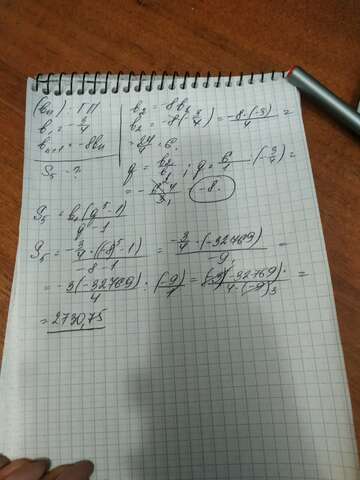 (bn) - ГП
b1 = 3/4
bn+1 = -8bn
S5 - ?
b2 = -8b1
b2 = -8(-3/4) = -8·(-3)/4 =
= 24/4 = 6
q = b2/b1 ; q = 6/1 : (-3/4) =
-8
S5 = b1(q⁵-1)/q-1
S5 = -3/4·((-8)⁵-1)/-8-1 = -3/4·(-32769)/-9 =
= -3(-32769)/4 : (-9/1) = (-3)(-32769)·/4·(-9)3 =
= 2730,75